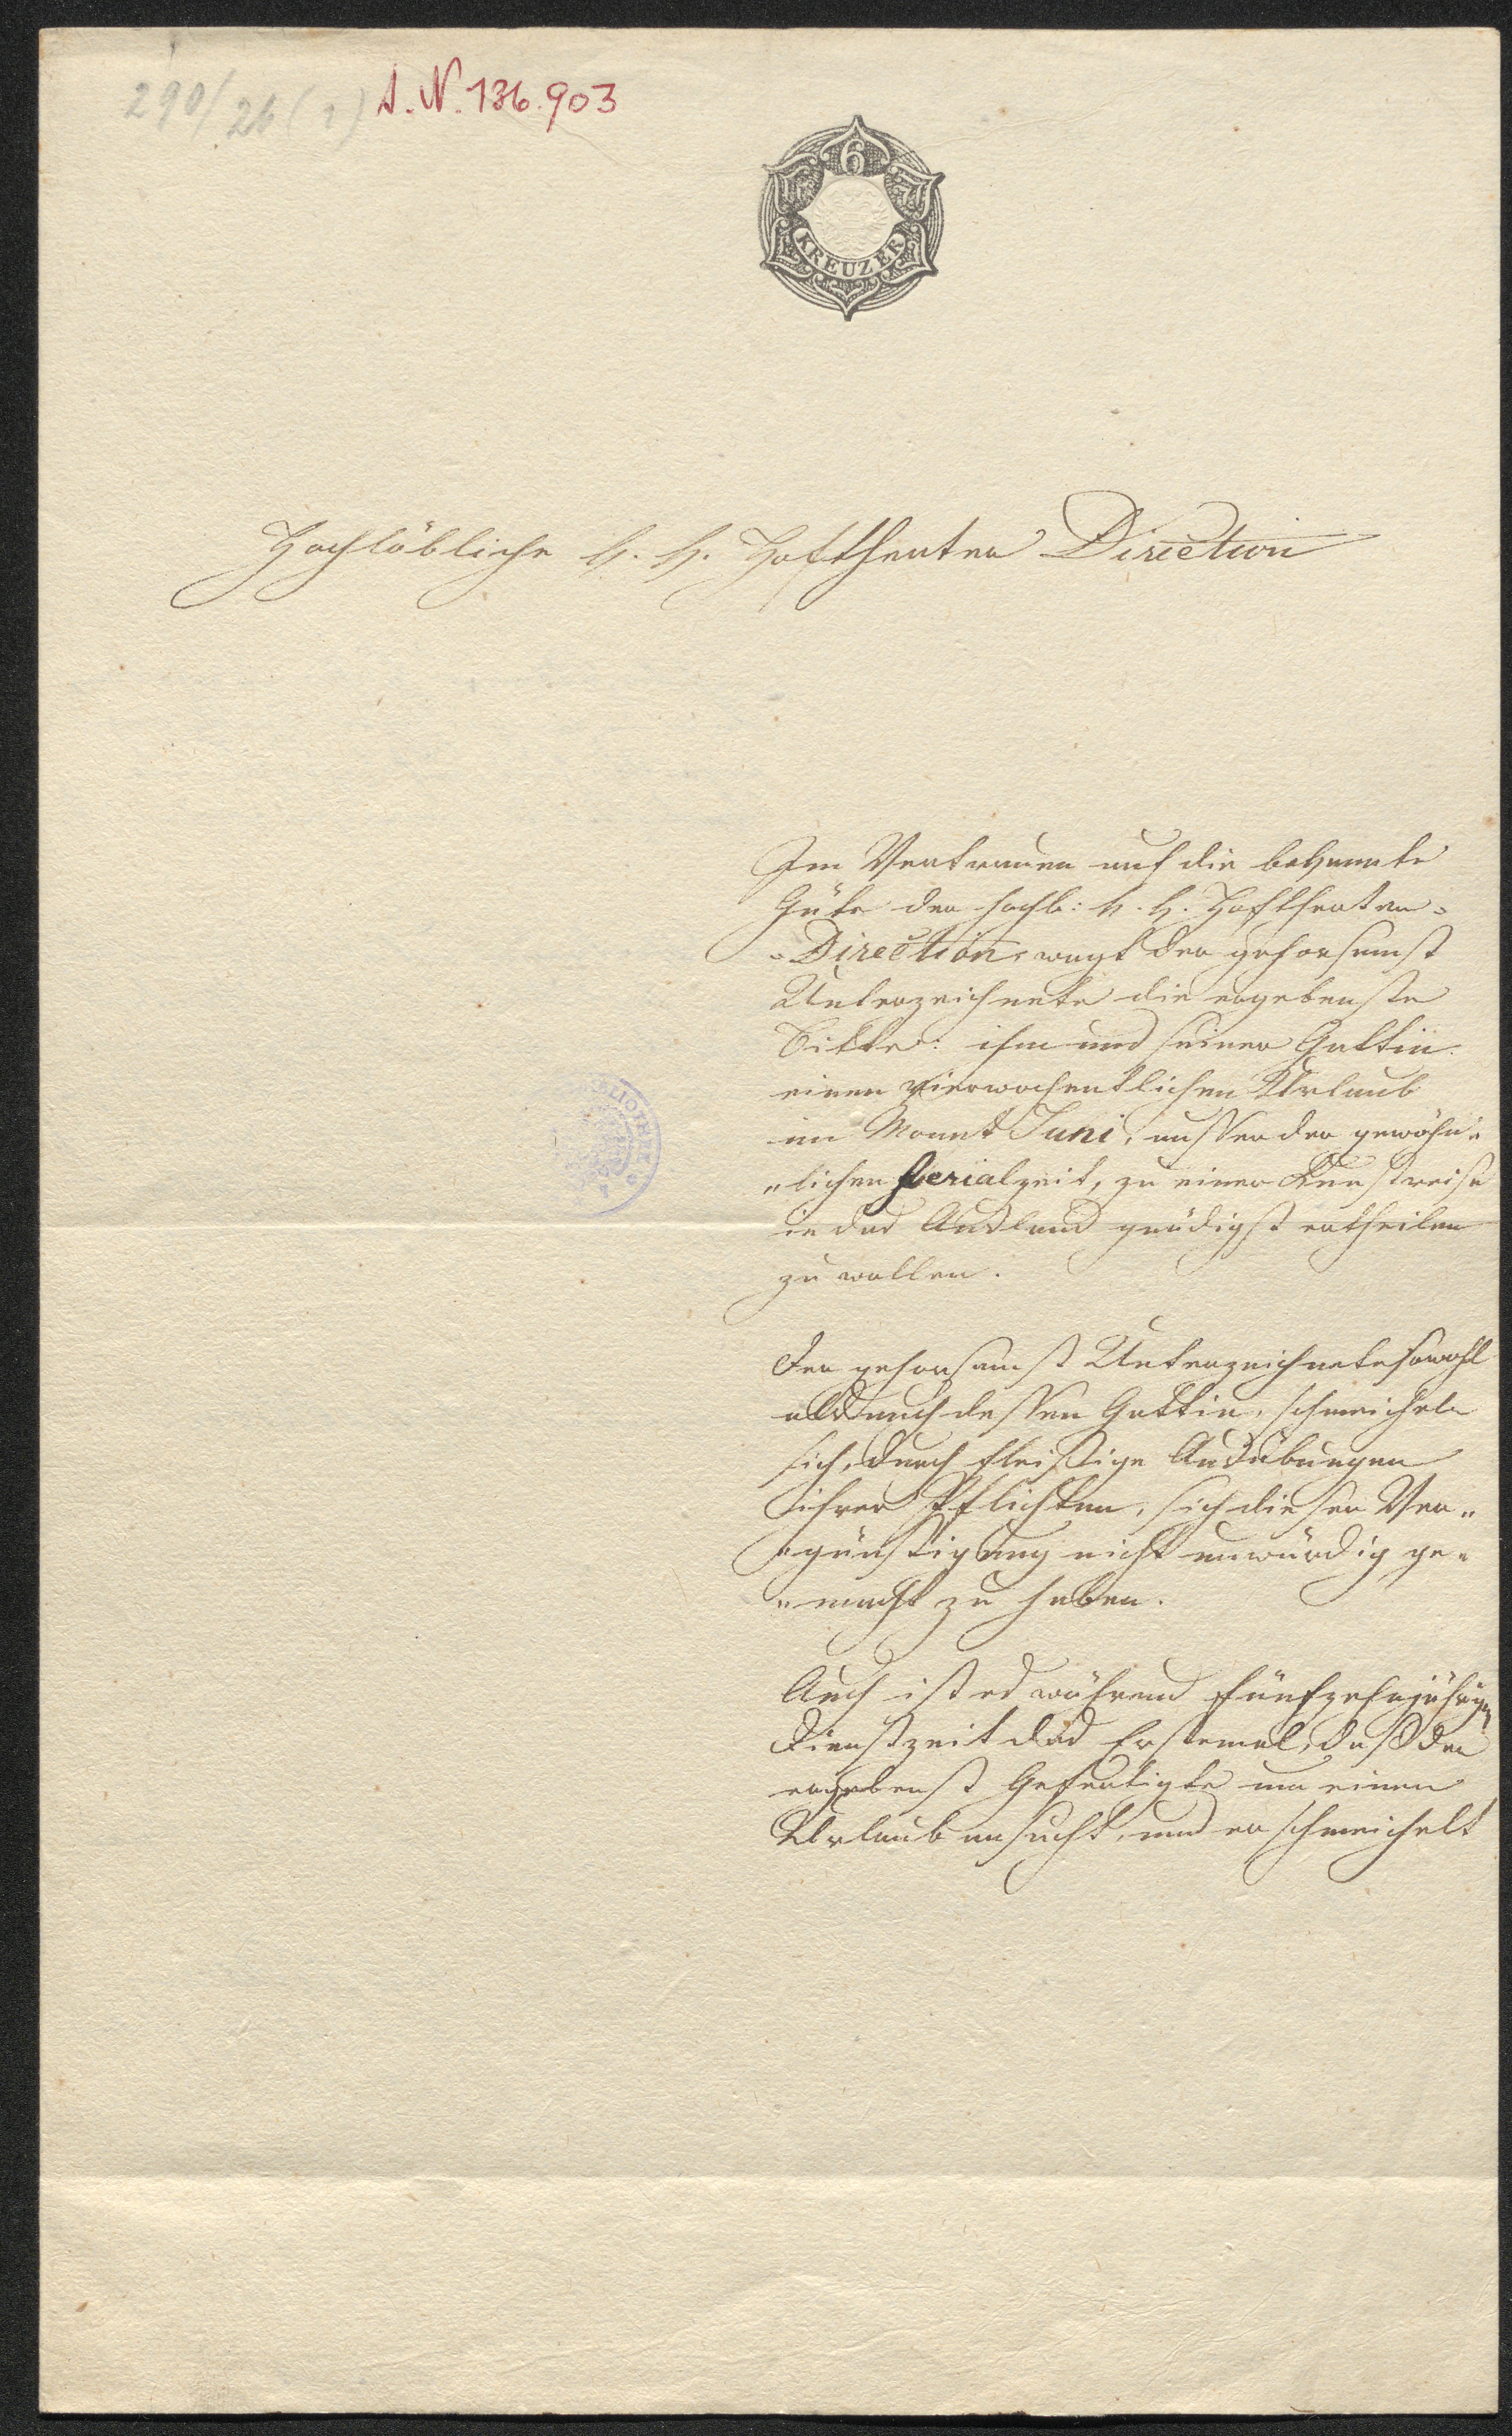 290/26 (1) A.N. 136.903
6
KREUZER
Hochlöbliche k. k. Hoftheater Direction
Im Vertrauen auf die bekannte
Güte der hochl: k. k. Hoftheater-
-Direction, wagt der gehorsamst
Unterzeichnete die ergebenste
Bitte: ihm und seiner Gattin
einen vierwochentlichen Urlaub
im Monat Juni, ausser der gewöhn"
"lichen Ferialzeit, zu einer Kunstreise
in das Ausland gnädigst ertheilen
zu wollen.
Der gehorsamst Unterzeichnete sowohl
als auch dessen Gattin, schmeicheln
sich, durch fleißige Ausübungen
ihrer Pflichten, sich dieser Ver"
"günstigung nicht unwürdig ge"
"macht zu haben.
Auch ist es während fünfzehnjähriger
Dienstzeit das Erstemal, daß der
ergebenst Gefertigte um einen
Urlaub ansucht, und er schmeichelt